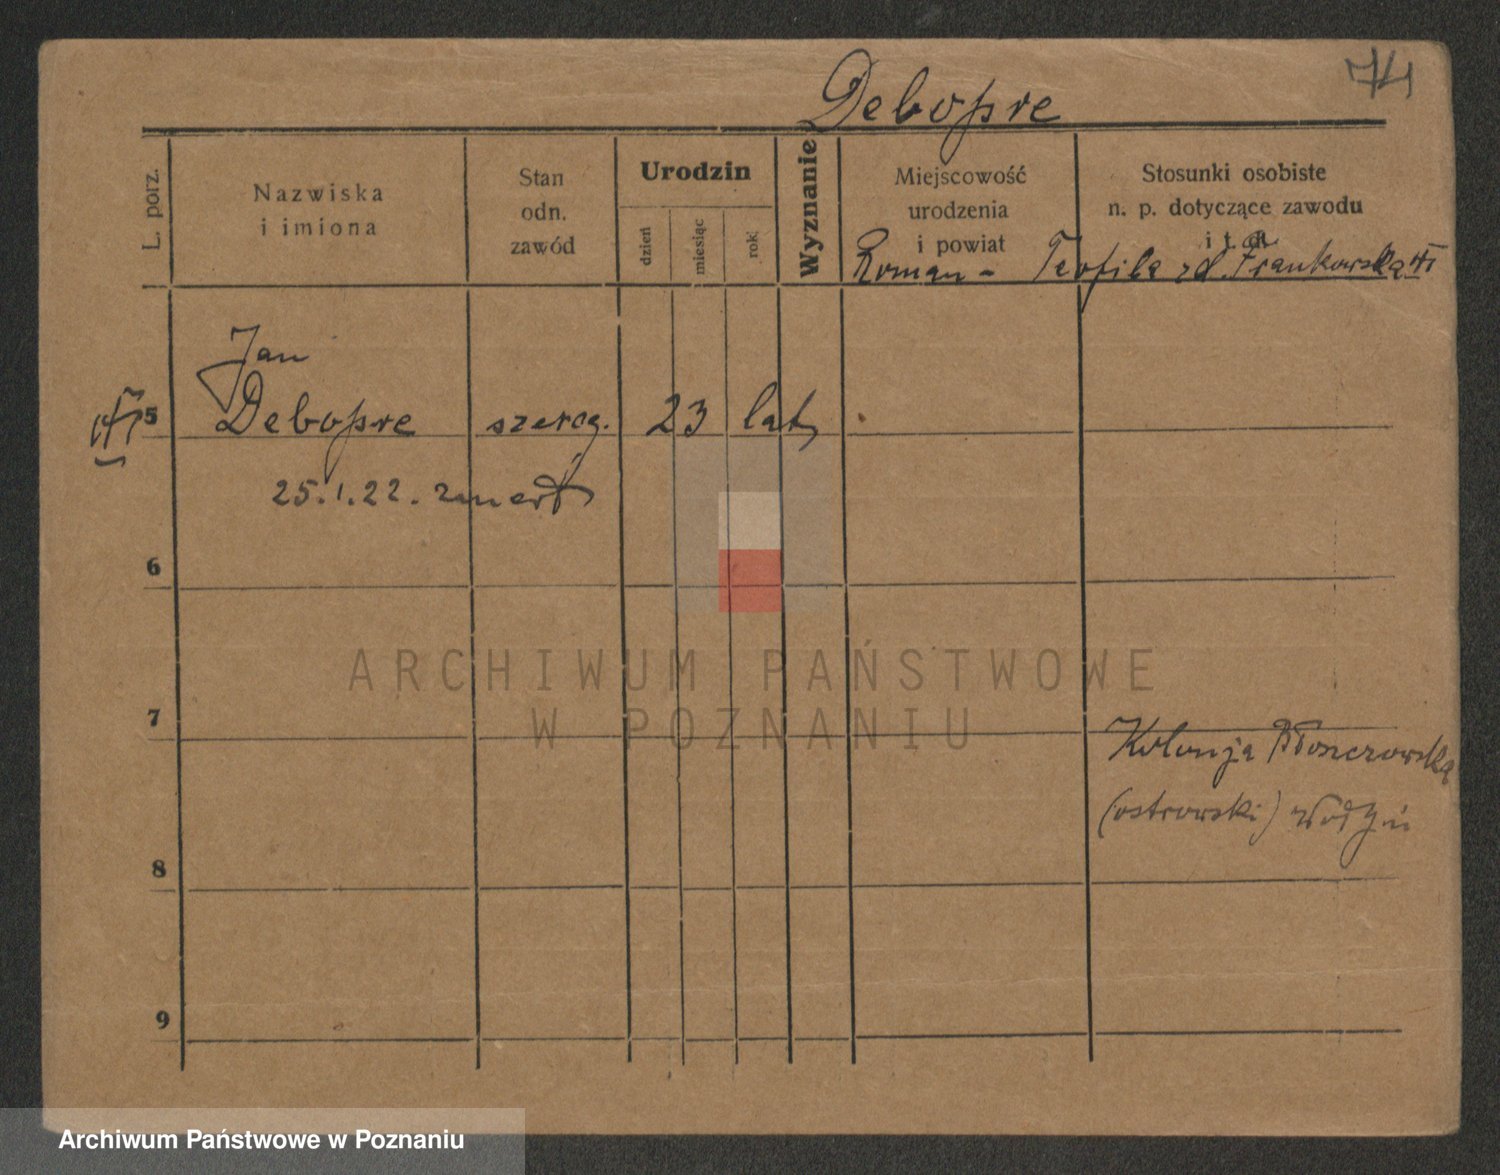 74
Debopre
L. porz.
Nazwiska
i imiona
Stan
odn.
zawód
Urodzin
dzień
miesiąc
rok
Wyznanie
Miejscowość
urodzenia
i powiat
Stosunki osobiste
n. p. dotyczące zawodu
i t. d.
Roman - Teofila zd. Frankowska
Jan
5 Debopre szereg. 23 lat
25.1.22. zmarł
6
7
Kolonja
(ostrowski)
8
9
ARCHIWUM PAŃSTWOWE
W POZNANIU
Archiwum Państwowe w Poznaniu